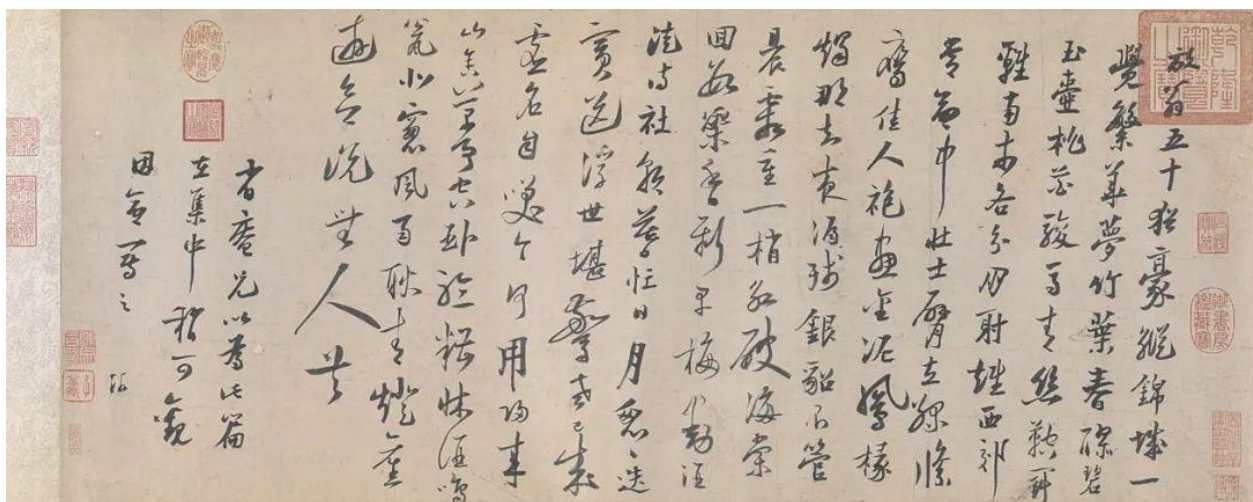 乾隆御覽之寶
放翁五十猶豪縱錦城一
覺繁華夢竹葉春醪碧
玉壺桃花駿馬青絲鞚鬥
雞南市各分朋射雉西郊
常命中壯士臂立綠絛
鷹佳人袍畫金泥鳳椽
燭那知夜漏殘銀貂不管
晨霜重一梢紅破海棠
回數蕊香新早梅動酒
徒詩社朝暮忙日月匆迭
賓送浮世堪驚老已成
虛名自笑今何用歸來
山舍萬事空臥聽糟床酒鳴
甕北窗風雨耿青燈舊
遊欲說無人共
省庵兄以為此篇
在集中稍可觀
因命寫之 游
嘉慶御覽之寶
御書房鑑藏寶